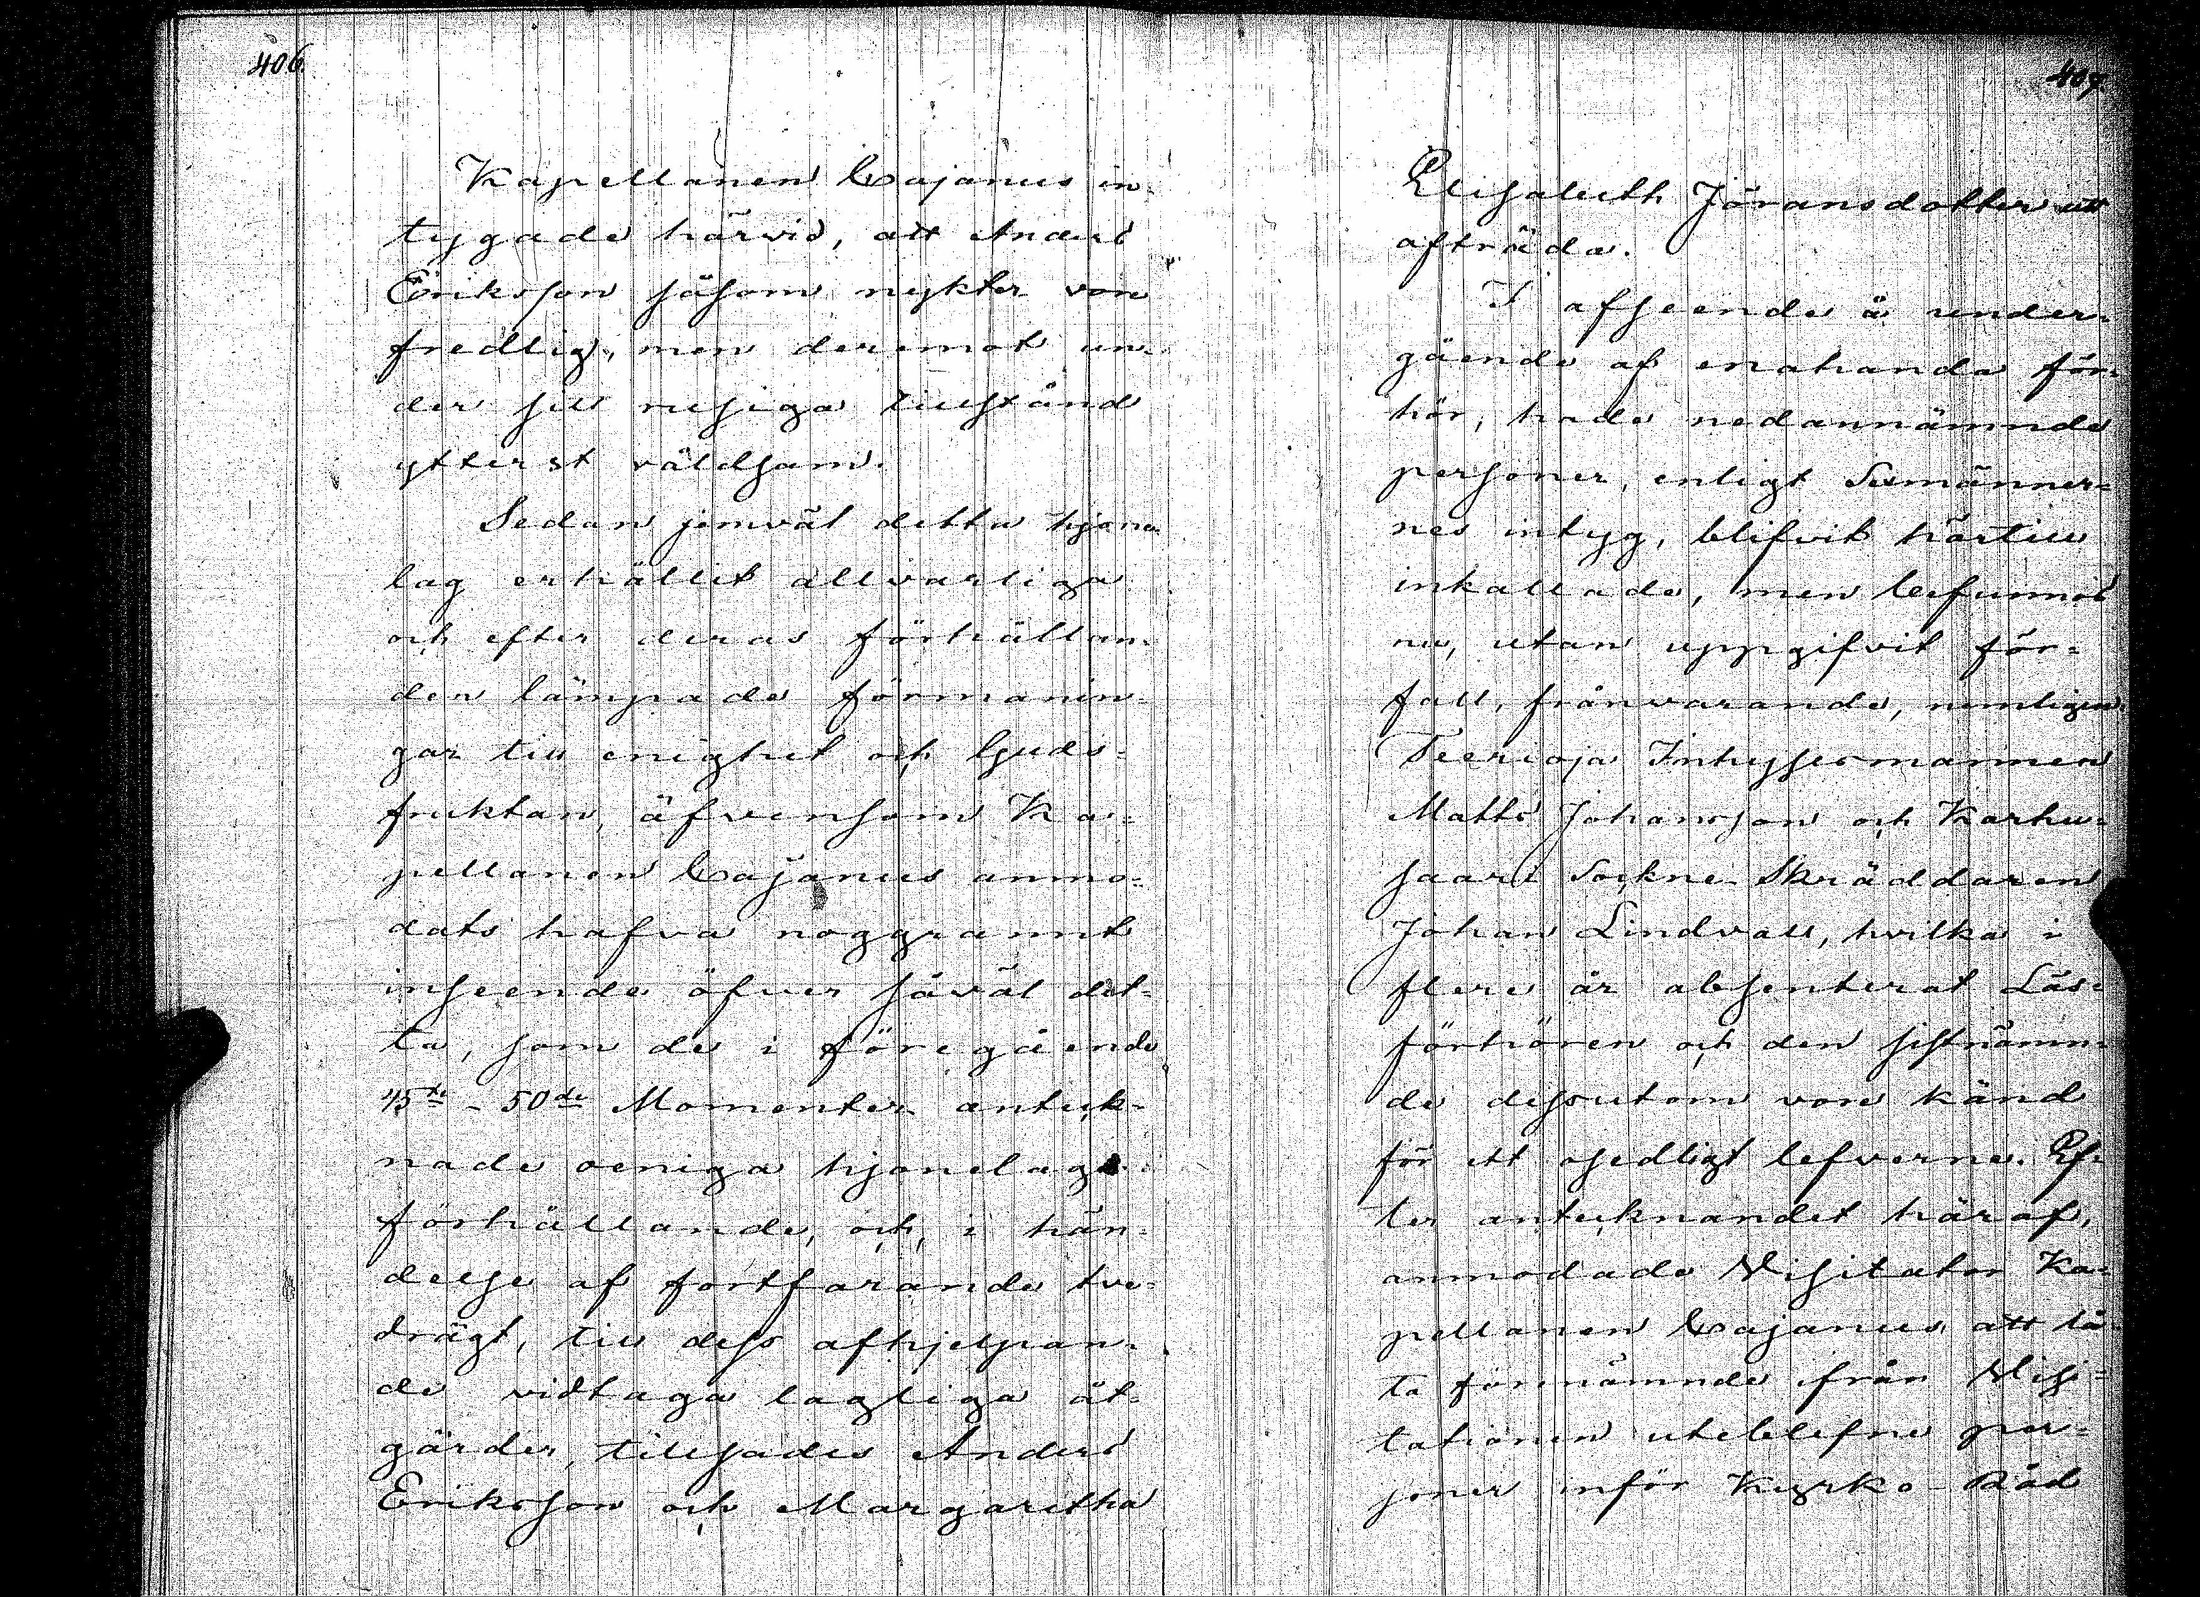 406.
Kapellanen Cajanus in-
tygade härvid, att Anders
Eriksson såsom nykter vore
fredlig, men deremot un-
der sitt rusiga tillstånd
ytterst våldsam.
Sedan jemväl detta hjona-
lag erhållit allvarliga
och efter deras förhållan-
den lämpade förmanin-
gar till enighet och Guds-
fruktan, äfvensom Ka-
pellanen Cajanus anmo-
dats hafva noggrannt
inseende öfver såväl det-
ta, som de i föregående
45te - 50de Momenter anteck-
nade oeniga hjonelags
förhållande, och, i hän-
delse af fortfarande tve-
drägt, till dess afhjelpan-
de vidtaga lagliga åt-
gärder, tillsades Anders
Eriksson och Margaretha
407.
Elisabeth Jöransdotter att
afträda.
I afseende å under-
gående af enahanda för-
hör, hade nedannämnde
personer, enligt Sexmänner-
nes intyg, blifvit härtill
inkallade, men befunnos
nu, utan uppgifvit för-
fall, frånvarande, nemligen
Teerioja Inhysesmannen
Matts Johansson och Karhu-
saari Sockne-Skräddaren
Johan Lindvall, hvilka i
flere år absenterat Läs-
förhören och den sistnämn-
de dessutom vore känd
för ett osedligt lefverne. Ef-
ter antecknandet häraf,
anmodade Visitator Ka-
pellanen Cajanus att lå-
ta förenämnde från Visi-
tationen uteblefne per-
soner inför Kyrko-Råd